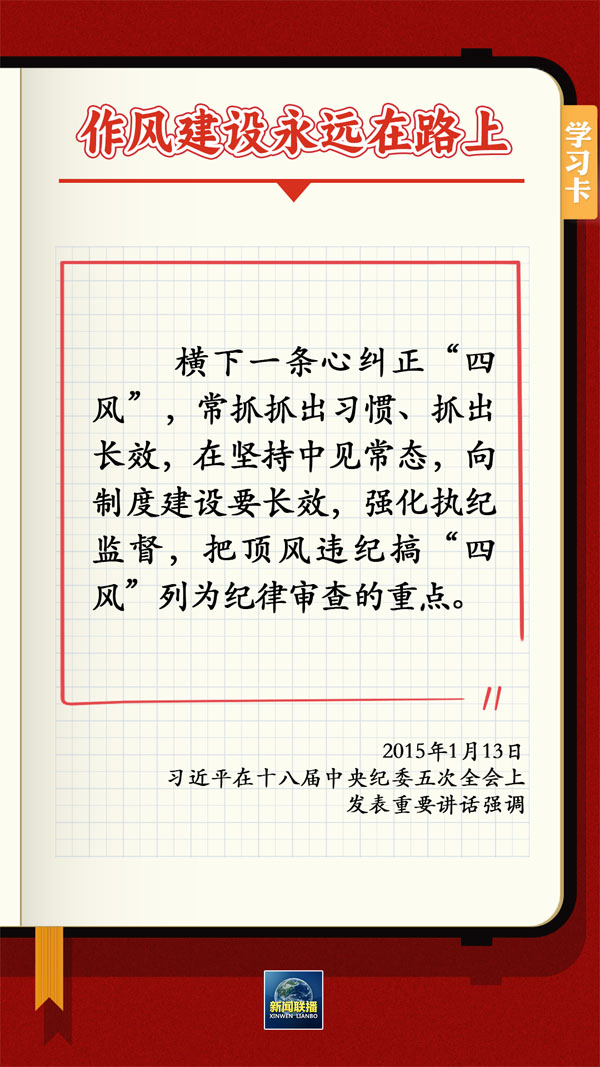 作风建设永远在路上
学习卡
横下一条心纠正“四
风”，常抓抓出习惯、抓出
长效，在坚持中见常态，向
制度建设要长效，强化执纪
监督，把顶风违纪搞“四
风”列为纪律审查的重点。
2015年1月13日
习近平在十八届中央纪委五次全会上
发表重要讲话强调
新闻联播
XINWEN LIANBO